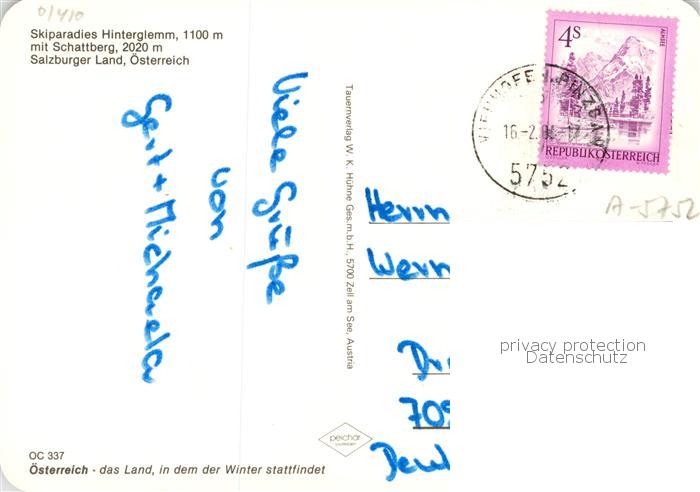 0/410
Skiparadies Hinterglemm, 1100 m
mit Schattberg, 2020 m
Salzburger Land, Österreich
Viele Grüße
von
Gert + Michaela
Tauernverlag W. K. Hühne Ges.m.b.H., 5700 Zell am See, Austria
4S
ALMSEE
REPUBLIK ÖSTERREICH
5752
A-5752
Herrn
Wern
privacy protection
Datenschutz
709
Deut
peichär
OC 337
Österreich · das Land, in dem der Winter stattfindet